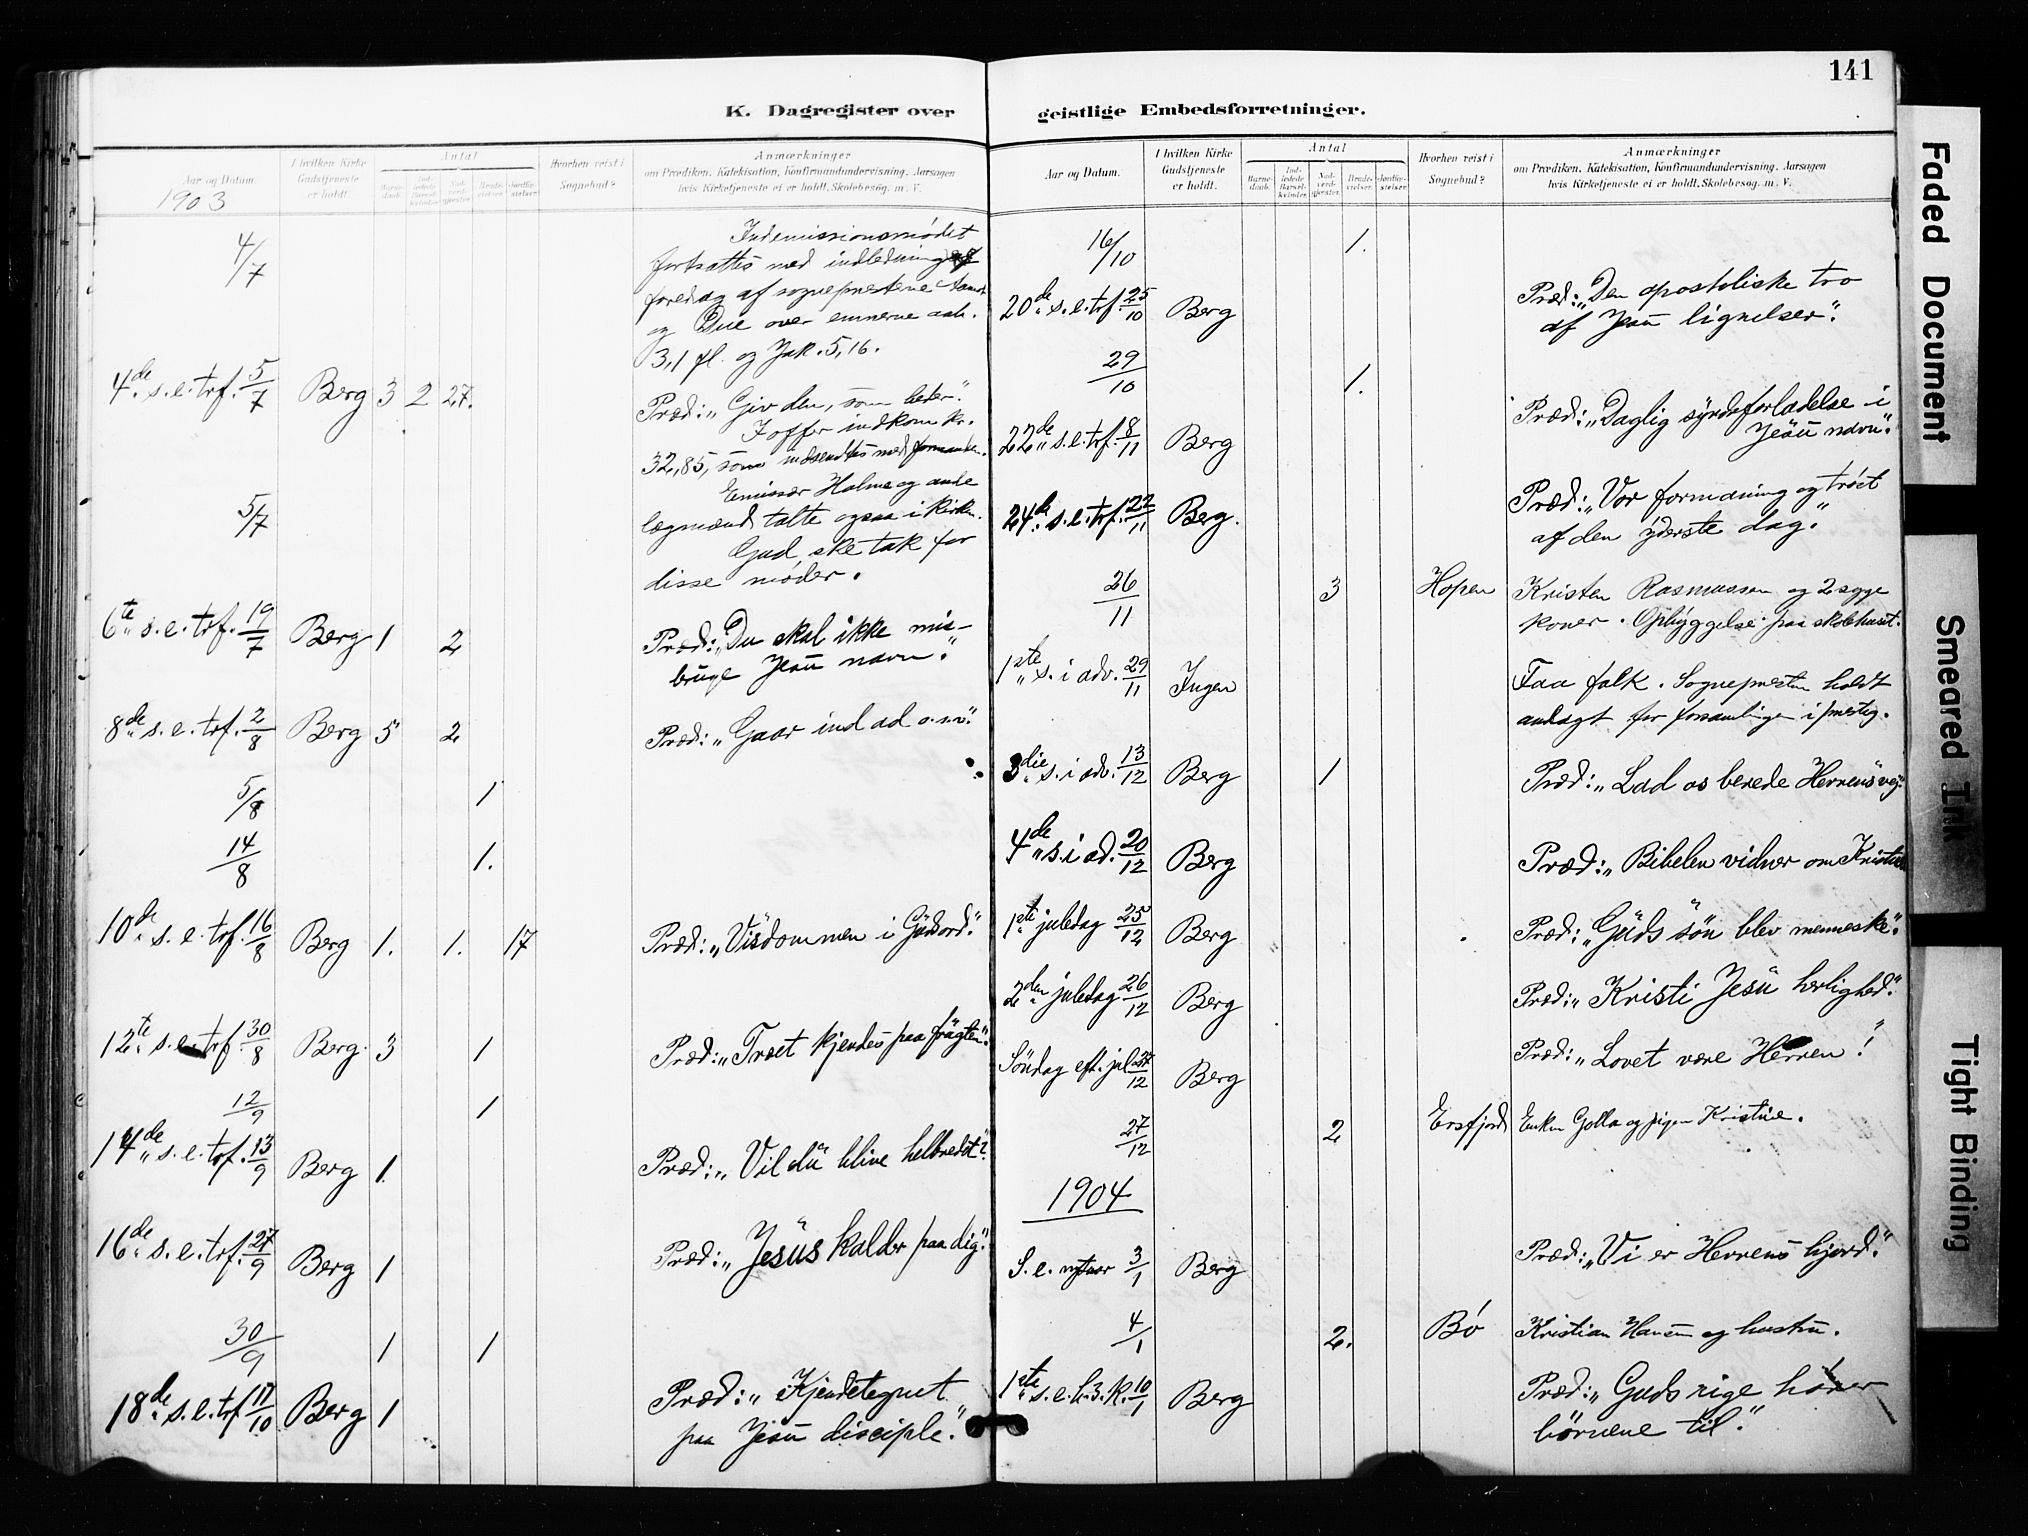 141
K. Dagregister over
geistlige Embedsforretninger.
Aar og Datum.
1903
I hvilken Kirke Gudstjeneste er holdt.
Antal
Barnedaab.
Indledede Barselkvinder.
Nadverdgjæster.
Brudevielser.
Jordfæstelser.
Hvorhen reist i Sognebud?
Anmærkninger
om Prædiken, Katekisation, Konfirmandundervisning, Aarsagen
hvis Kirketjeneste ei er holdt, Skolebesøg. m. V.
4/7 Indemissionsmødet
fortsattes med indlednings
foredrag af sogneprestene
og Due over emnerne
3,1 fl. og Jak. 5,16.
4de s. e. tref. 5/7 Berg 3 2 27. Præd: „Giv den, som beder."
I offer indkom kr.
32,85, som indsendtes med
5/7 Emissær Holme og andre
lægmænd talte ogsaa i kirken.
Gud ske tak for
disse møder.
6te s. e. tref. 19/7 Berg 1 2 Præd: „Du skal ikke mis-
bruge Jesu navn."
8de s. e. tref. 2/8 Berg 5 2 Præd: „Gaar ind ad o.s.v."
5/8 1
14/8 1.
10de s. e. tref. 16/8 Berg 1. 1. 17 Præd: „Visdommen i Guds ord."
12te s. e. tref. 30/8 Berg. 3 1 Præd: „Træet kjendes paa frugten."
12/9 1
14de s. e. tref. 13/9 Berg 1. Præd: „Vil du blive helbredet?"
16de s. e. tref. 27/9 Berg 1 Præd: „Jesus kalder paa dig."
30/9 1 1
18de s. e. tref 11/10 Berg 1 Præd: „Kjendetegnet
paa Jesu disciple."
Aar og Datum.
I hvilken Kirke Gudstjeneste er holdt.
Antal
Barnedaab.
Indledede Barselkvinder.
Nadverdgjæster.
Brudevielser.
Jordfæstelser.
Hvorhen reist i Sognebud?
Anmærkninger
om Prædiken, Katekisation, Konfirmandundervisning, Aarsagen
hvis Kirketjeneste ei er holdt, Skolebesøg. m. V.
16/10 1.
20de s. e. tref. 25/10 Berg Præd: „Den apostoliske tro
af Jesu lignelser."
29/10 1.
22de s. e. tref. 8/11 Berg Præd: „Daglig syndsforladelse i
Jesu navn."
24de s. e. tref. 22/11 Berg. Præd: „Vor formaning og trøst
af den yderste dag."
26/11 3 Hopen Kristen Rasmussen og 2 syge
koner. Opbyggelse paa skolehuset.
1ste s. i adv. 29/11 Ingen Faa folk. Sognepresten holdt
andagt for forsamlingen i prestg.
3die s. i adv. 13/12 Berg 1 Præd: „Lad os berede Herrens vej."
4de s. i ad. 20/12 Berg Præd: „Bibelen vidner om Kristus
1ste juledag 25/12 Berg Præd: „Guds søn blev menneske."
2den juledag 26/12 Berg Præd: „Kristi Jesu herlighed."
Søndag eft. jul 27/12 Berg Præd: „Lovet være Herren!"
27/12 2 Ersfjord Enken Golla og pigen Kristine.
1904
S. e. nytaar 3/1 Berg Præd: „Vi er Herrens hjord."
4/1 2. Bø Kristian Hansen og hustru.
1ste s. e. h. 3. k. 10/1 Berg Præd: „Guds rige hører
børnene til."
Faded Document
Smeared Ink
Tight Binding